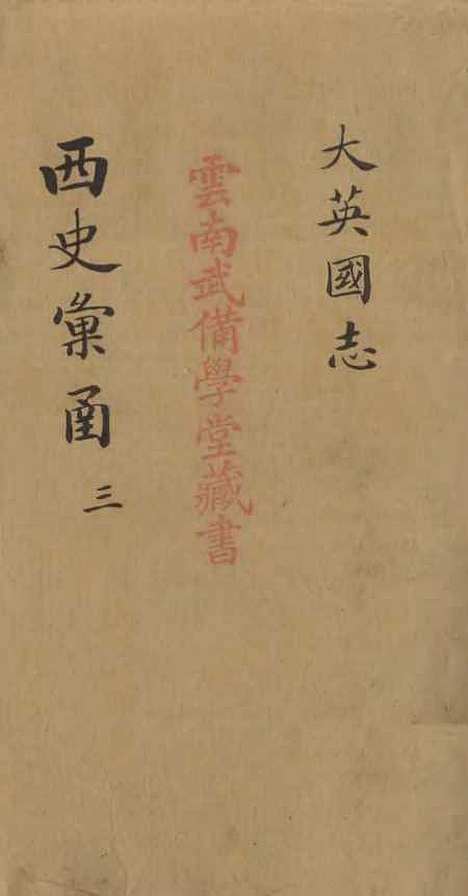 大英國志
雲南武備學堂藏書
西史彙函 三